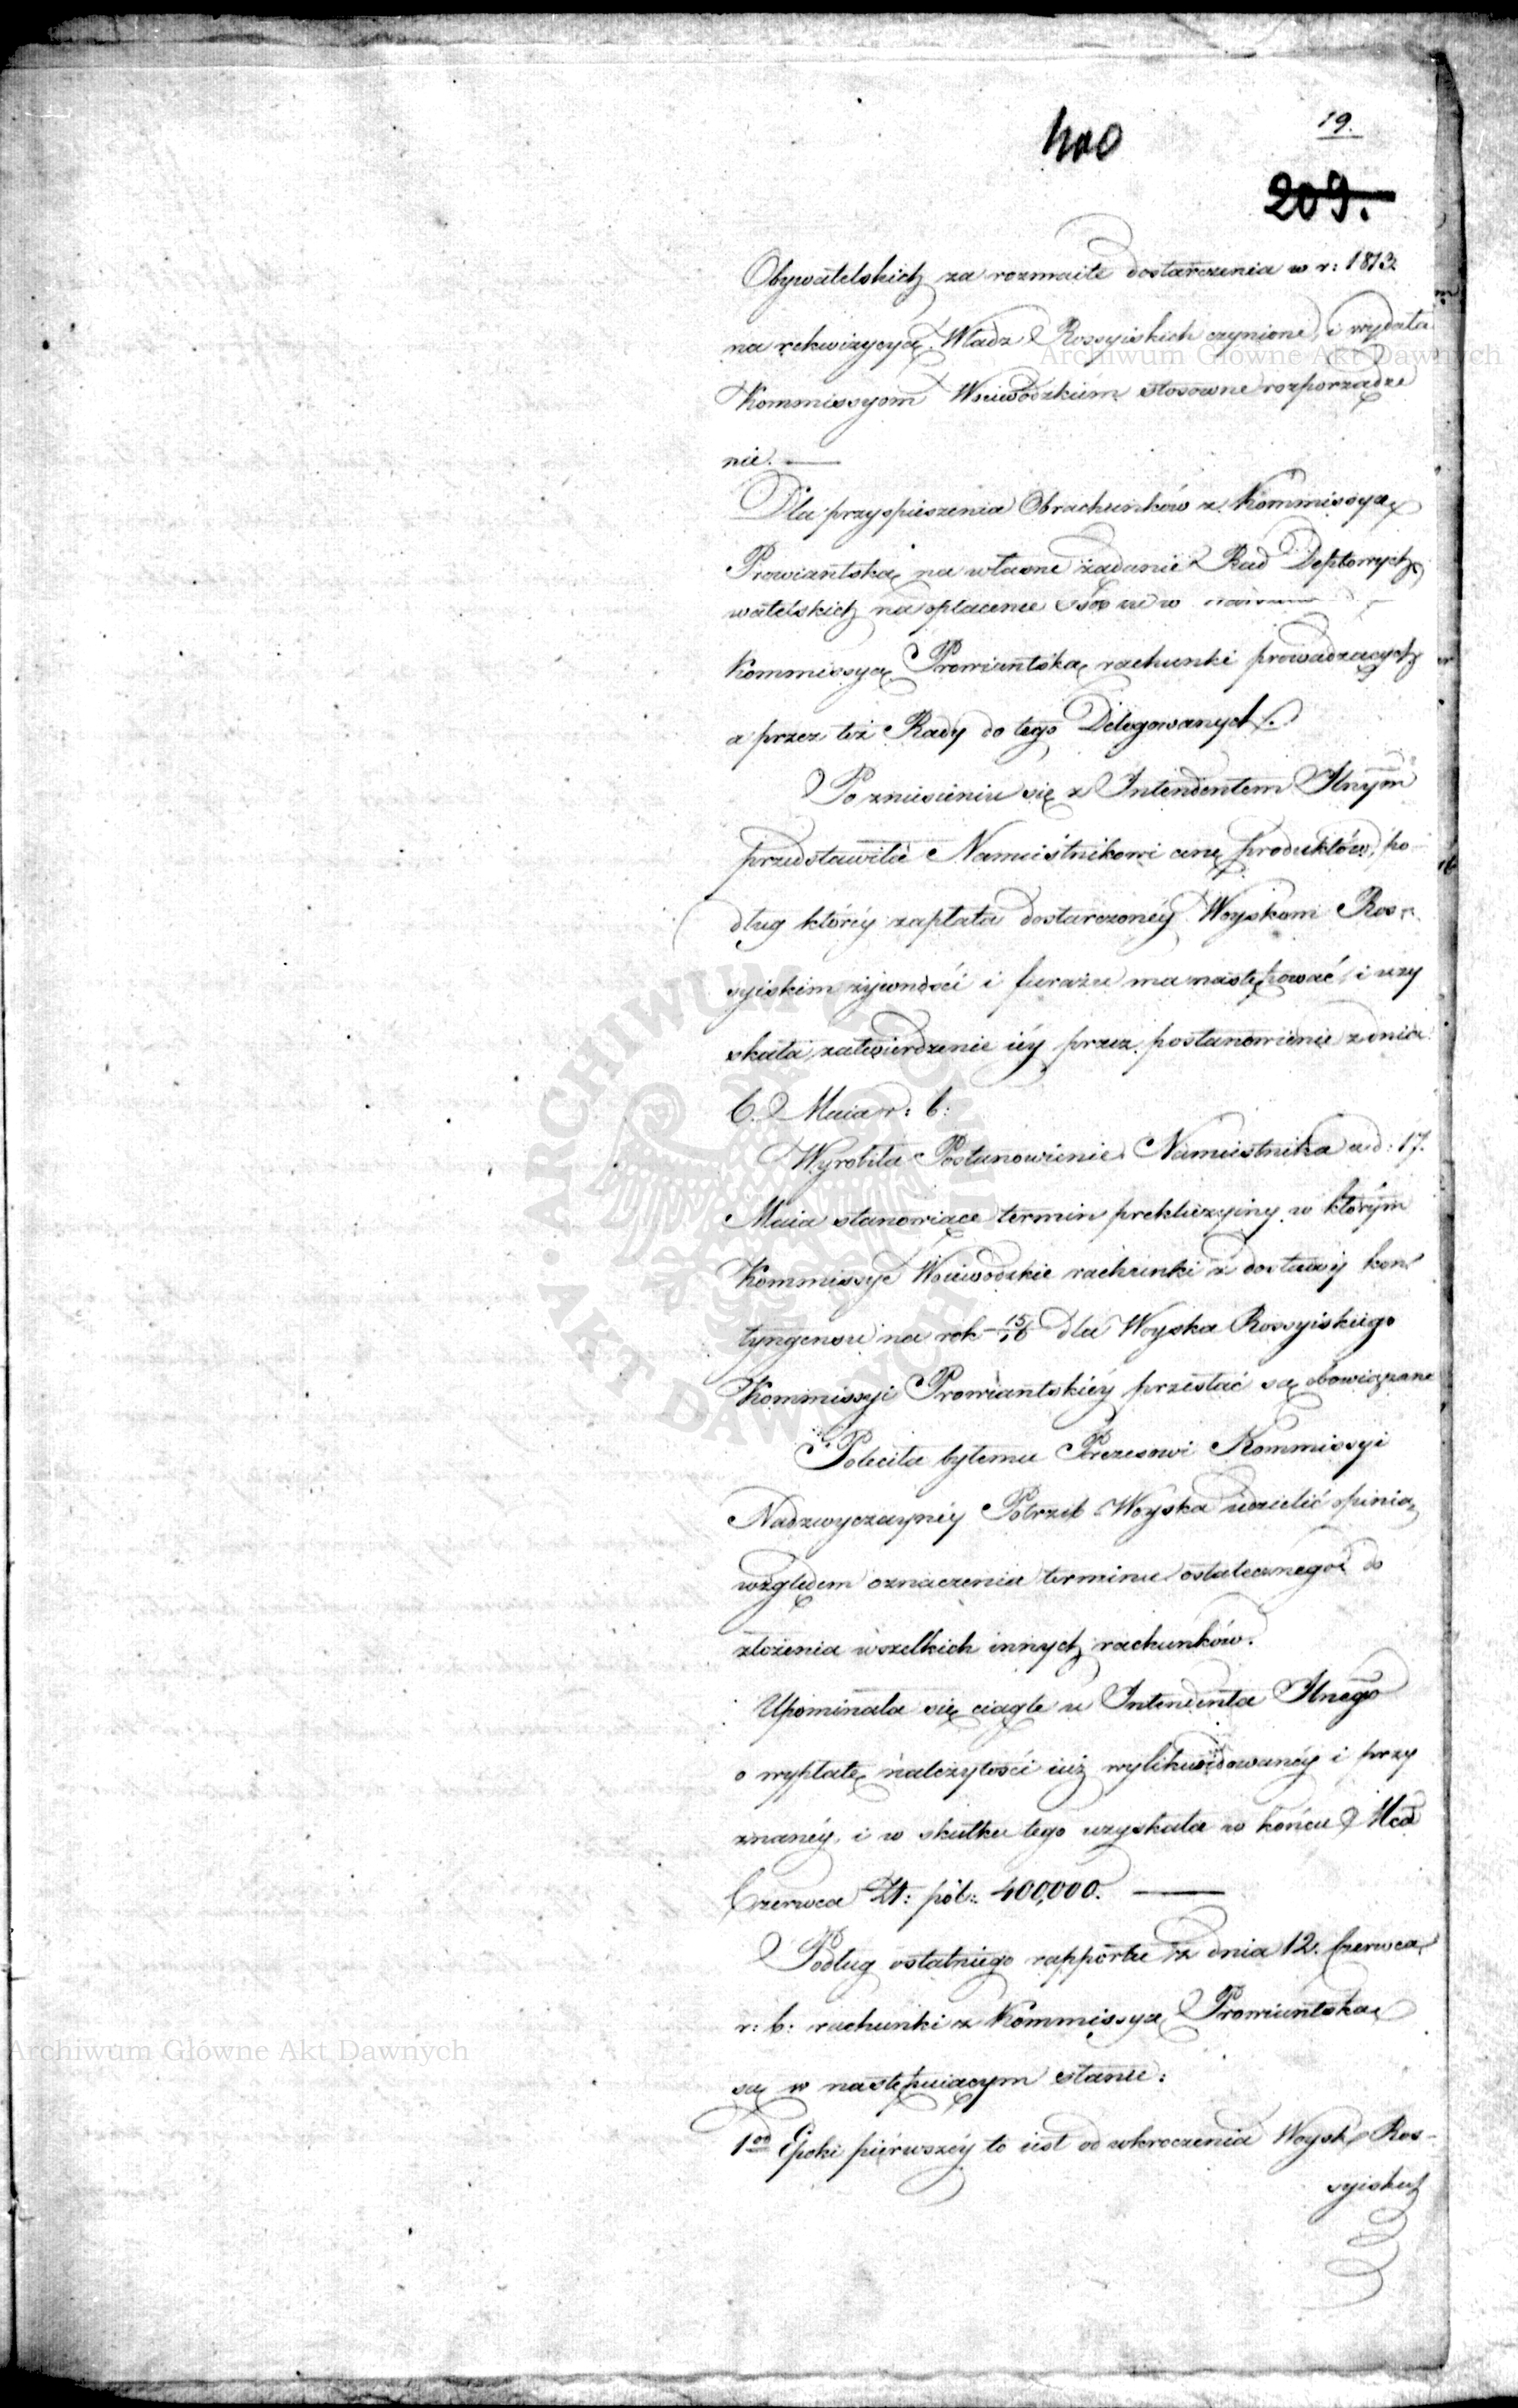 19.
400
209.
Obywatelskich za rozmaite dostarczenia w r: 1813.
na rekwizycyą Władz Rossyiskich czynione, i wydała
Kommissyom Woiewódzkiem stosowne rozporządze
nie. —
Dla przyspieszenia Obrachunków z Kommissyą
Prowiantską na własne żądanie Rad Deptowych
watelskich na opłacenie Osób w
Kommissyą Prowiantską rachunki prowadzących
a przez też Rady do tego Delegowanych.
Po zniesieniu się z Intendentem Jlnym
przedstawiła Namiestnikowi cenę produktów, po
dług któréy zapłata dostarczonéy Woyskom Ros-
syiskim żywności i furażu ma następować, i uzy
skała zatwierdzenie iéy przez postanowienie z dnia
6. Maia r: b:
Wyrobiła Postanowienie Namiestnika z d: 17.
Maia stanowiące termin prekluzyiny w którym
Kommissye Woiewódzkie rachunki z dostawy kon
tyngensu na rok 15/16 dla Woyska Rossyiskiego
Kommissyi Prowiantskiéy przesłać są obowiązane
Poleciła byłemu Prezesowi Kommissyi
Nadzwyczaynéy Potrzeb Woyska udzielić opinią
względem oznaczenia terminu ostatecznego do
złożenia wszelkich innych rachunków.
Upominała się ciągle u Intendenta Jlnego
o wypłatę należytości iuż wylikwidowanéy i przy
znanéy, i w skutku tego uzyskała w końcu Mca
Czerwca Zł: pol: 400,000. —
Podług ostatniego rapportu z dnia 12. Czerwca
r: b: rachunki z Kommissyą Prowiantską
są w następuiącym stanie:
1od Epoki piérwszéy to iest od wkroczenia Woysk Ros-
syiskich
Archiwum Główne Akt Dawnych
Archiwum Główne Akt Dawnych
ARCHIWUM GŁÓWNE AKT DAWNYCH